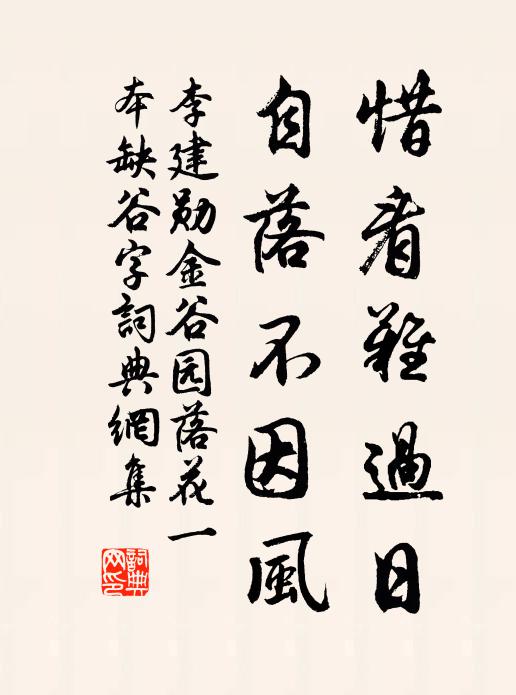 惜看難過日
自落不因風
李建勋金谷园落花一
本缺谷字詞典網集
詞典网印